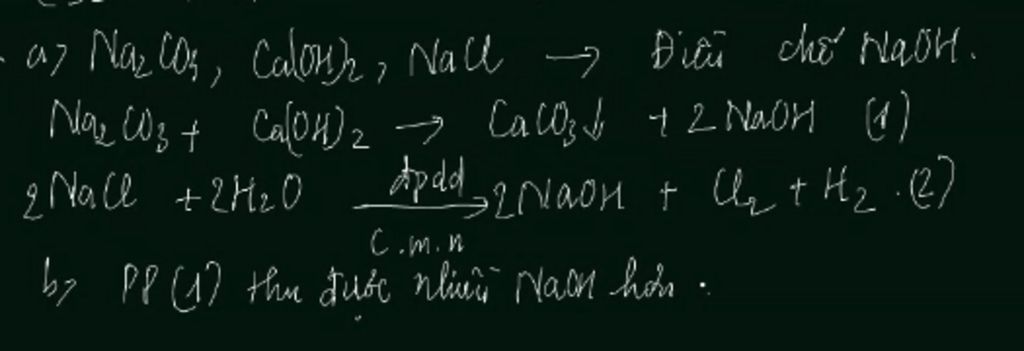 a) Na₂CO₃, Ca(OH)₂, NaCl → Điều chế NaOH.
Na₂CO₃ + Ca(OH)₂ → CaCO₃↓ + 2NaOH (1)
2NaCl + 2H₂O đpdd → 2NaOH + Cl₂ + H₂. (2)
c.m.n
b) PP (1) thu được nhiều NaOH hơn.